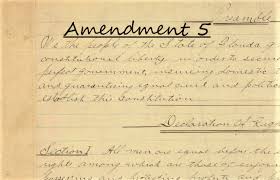 Preamble
Amendment 5
We the people of the State of Florida
constitutional liberty, in order to secure
perfect government, insuring domestic
and guaranteeing equal civil and political
establish this Constitution.
Declaration of Rights
Section 1 All men are equal before the
rights, among which are those of enjoy